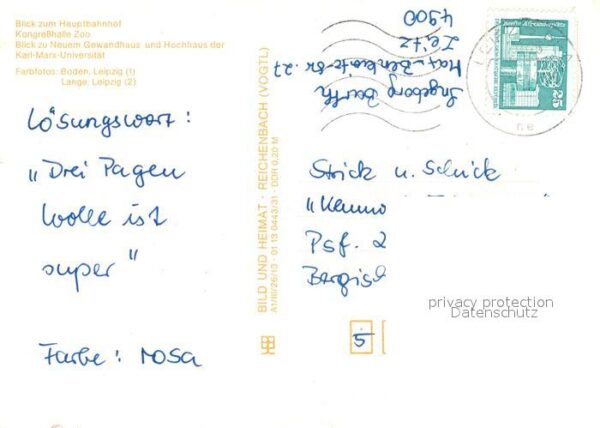 Blick zum Hauptbahnhof
Kongreßhalle Zoo
Blick zu Neuem Gewandhaus und Hochhaus der
Karl-Marx-Universität
Farbfotos: Boden, Leipzig (1)
Lange, Leipzig (2)
Lösungswort:
„Drei Pagen
Wolle ist
super"
Farbe: rosa
BILD UND HEIMAT · REICHENBACH (VOGTL)
A1/III/26/13 · 01 13 0443/31 · DDR 0,20 M
Ingeborg Barth
Zeitz
4900
25
Strick u. Schick
Psf. 2
5
privacy protection
Datenschutz